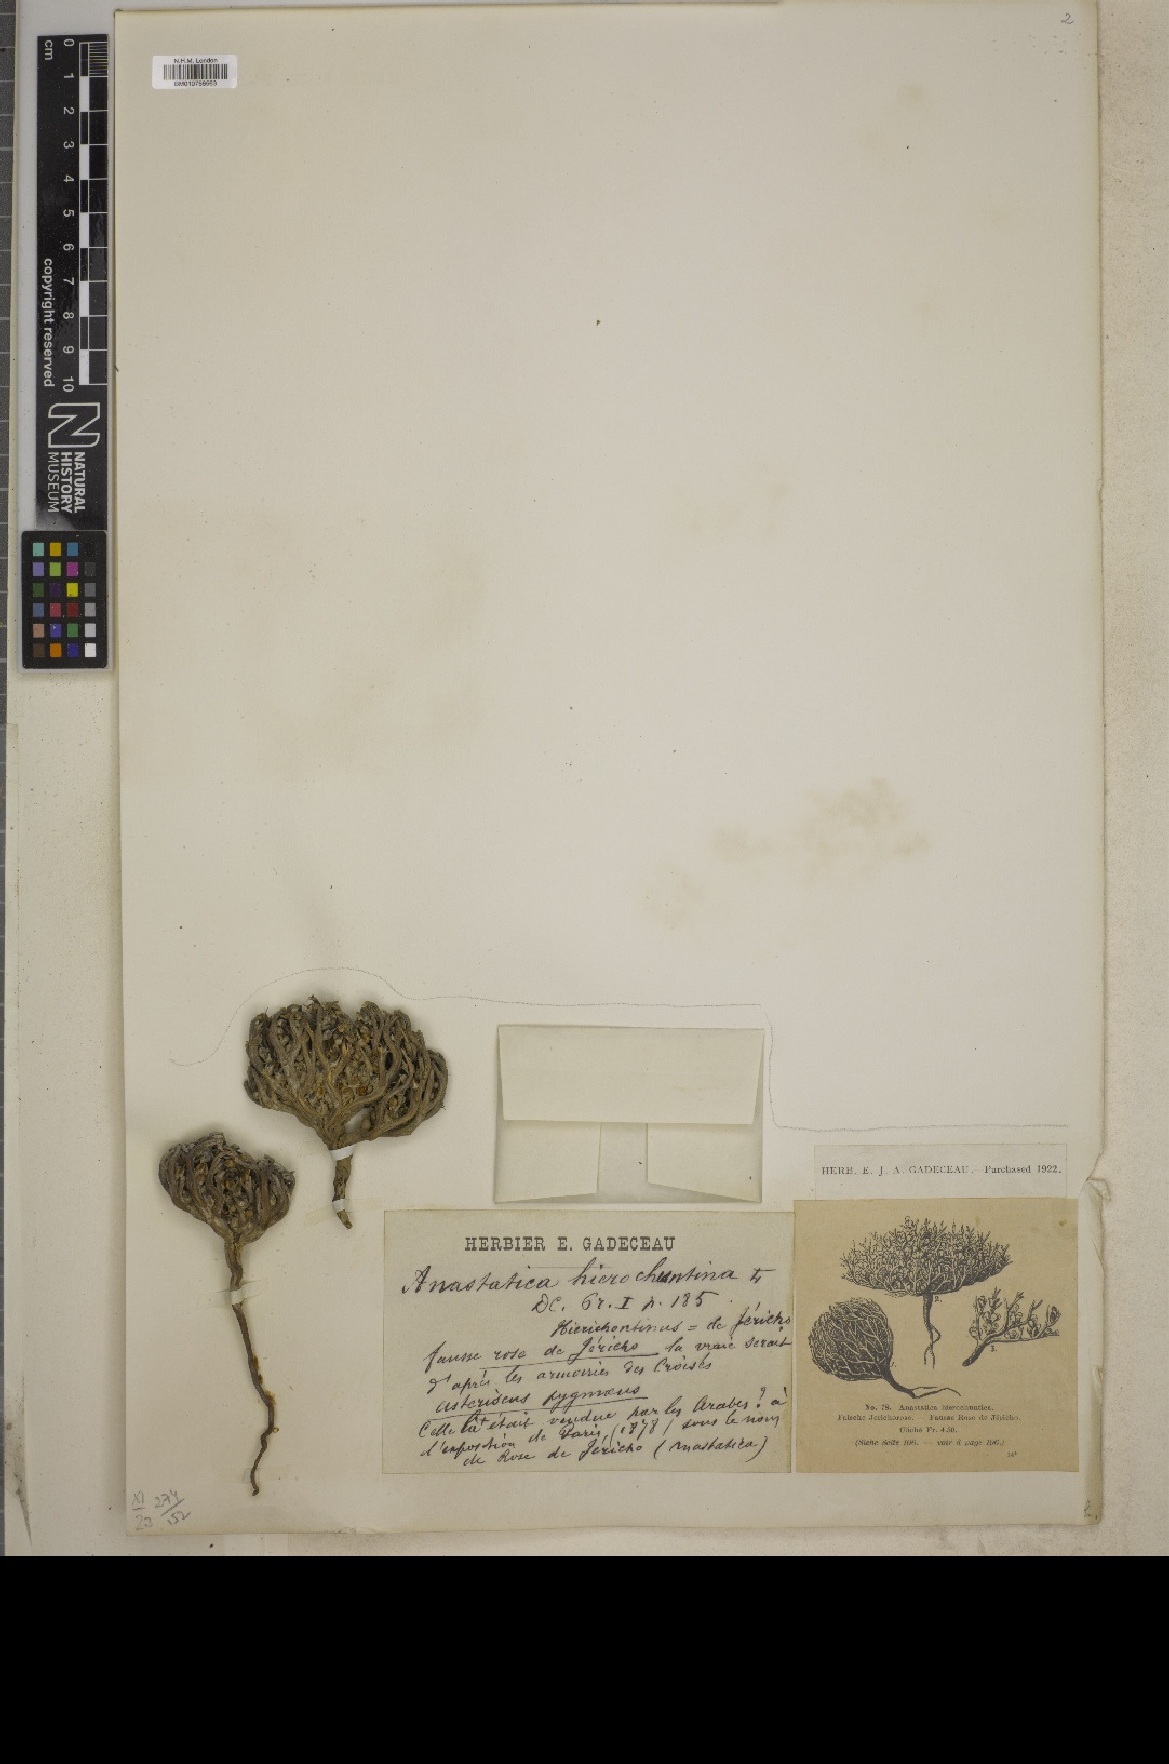 2
N.H.M. London
cm 0 1 2 3 4 5 6 7 8 9 10
copyright reserved
NATURAL
HISTORY
MUSEUM
HERB. E. J. A. GADECEAU.—Purchased 1922.
HERBIER E. GADECEAU
Anastatica hierochuntina
DC. Pr. I p. 185
Hierichontinus = de Jéricho
fausse rose de Jéricho la vraie serait
d'après les armoiries des Croisés
asteriscus pygmœus
Celle là était vendue par les Arabes? à
l'exposition de Paris, (1878) sous le nom
de Rose de Jéricho (Anastatica)
2.
1.
3.
No. 78. Anastatica hierochuntica.
Falsche Jerichorose. — Fausse Rose de Jéricho.
Cliché Fr. 4.50.
(Siehe Seite 106. — voir à page 106.)
XI 274
23 52